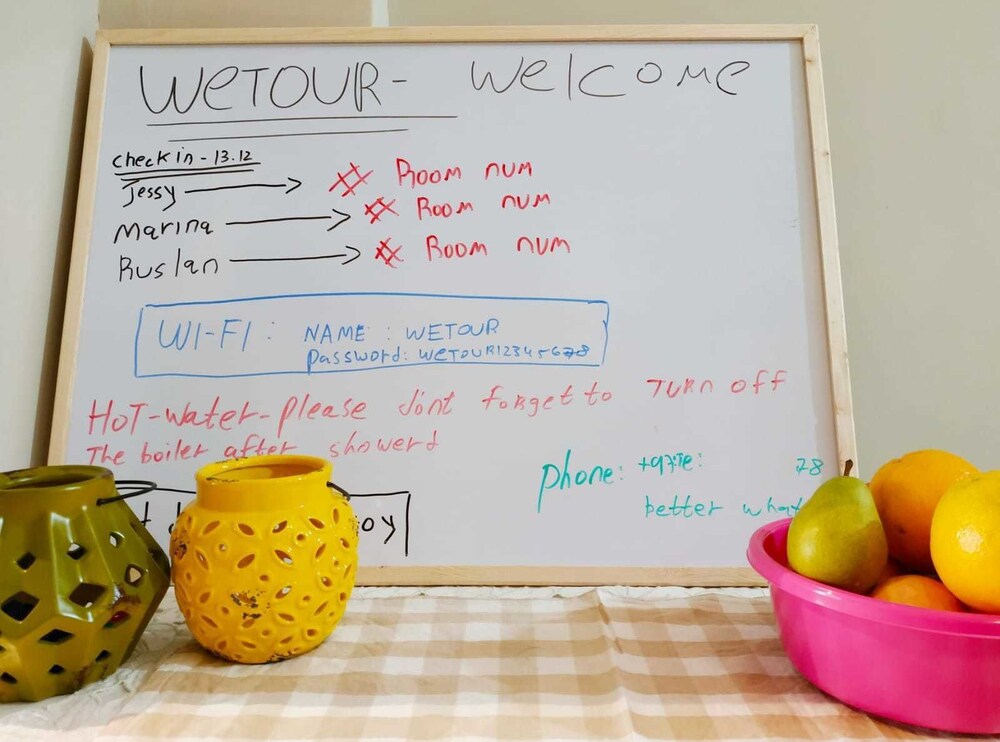 WETOUR - Welcome
Check in - 13.12
Jessy → # Room num
Marina → # Room num
Ruslan → # Room num
WI-FI: NAME: WETOUR
password: WETOUR12345678
HOT-water-please dont forget to TURN off
The boiler after showerd
phone:
28
better
oy